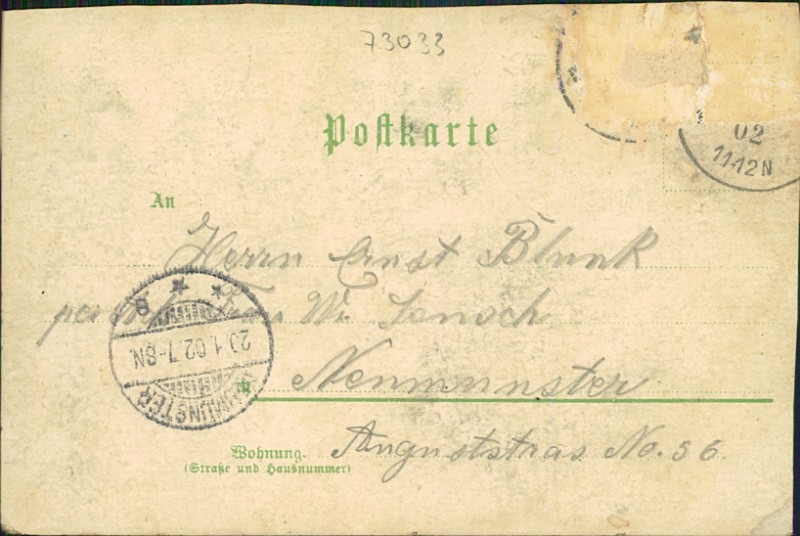 73033
Postkarte
02
11-12N
An
Herrn Ernst Blunk
Frau W. Jensch
* *
8
20.1.02.7-8N.
NEUMÜNSTER
in Neumunster
Wohnung.
(Straße und Hausnummer)
Auguststras No. 56.